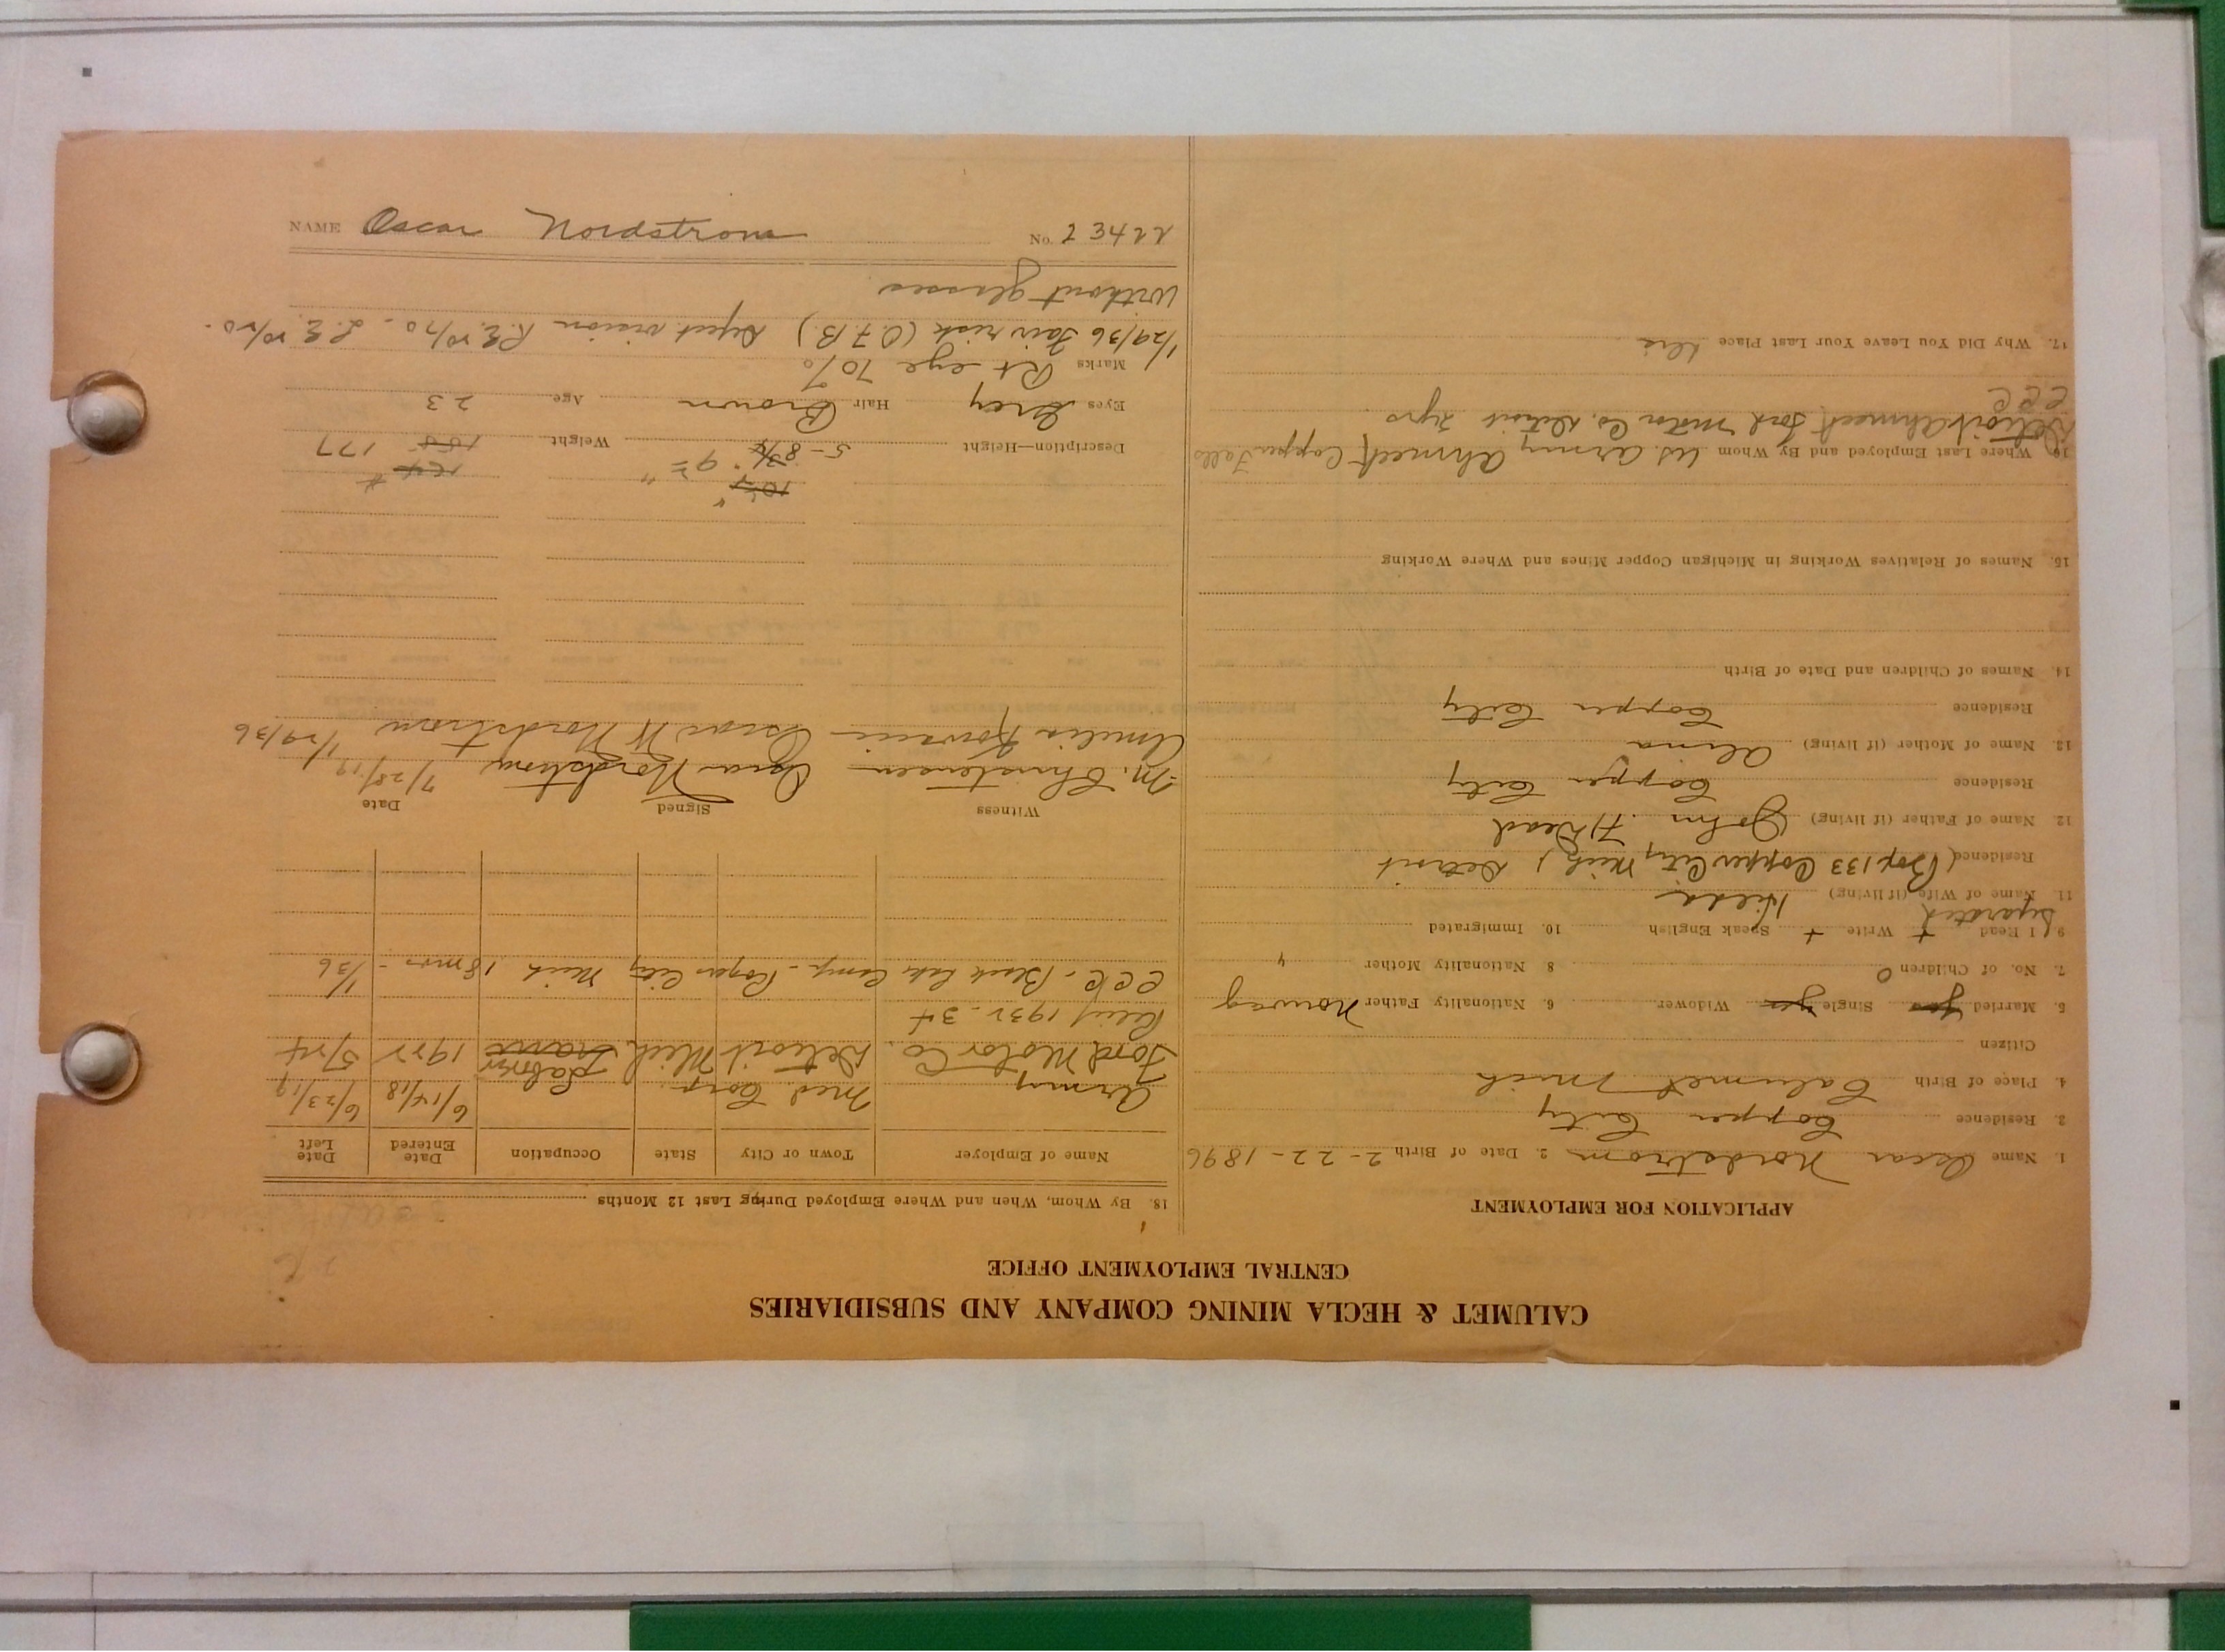 CALUMET & HECLA MINING COMPANY AND SUBSIDIARIES
CENTRAL EMPLOYMENT OFFICE
APPLICATION FOR EMPLOYMENT
1. Name Oscar Nordstrom 2. Date of Birth 2-22-1896
3. Residence Copper City
4. Place of Birth Calumet Mich
Citizen
5. Married yes Single yes Widower 6. Nationality Father Norway
7. No. of Children 0 8 Nationality Mother "
9. I Read + Write + Speak English 10. Immigrated
Separated
11. Name of Wife (if living) Hilda
Residence (Box 133 Copper City, Mich) Detroit
12. Name of Father (if living) John Dead
Residence Copper City
13. Name of Mother (if living) Alina
Residence Copper City
14. Names of Children and Date of Birth
15. Names of Relatives Working in Michigan Copper Mines and Where Working
16. Where Last Employed and By Whom U.S. Army Ahmeek, Copper Falls
Detroit Ahmeek Ford Motor Co. Detroit 2yrs
C.C.C.
17. Why Did You Leave Your Last Place Dis
18. By Whom, When and Where Employed During Last 12 Months
Name of Employer Town or City State Occupation Date Entered Date Left
Army Med Corp. 6/14/18 6/23/19
Ford Motor Co. Detroit Mich Labor 1922 5/24
Relief 1932-34
C.C.C. - Black Lake Camp - Rogers City Mich 18 mos - 1/36
Witness Signed Date
M. Christensen Oscar Nordstrom 7/28/19
Amelia Oscar W Nordstrom 1/29/36
10½" 164 #
Description—Height 5-8¾" 9" Weight 155 177
Eyes Grey Hair Brown Age 23
Marks Rt eye 70%
1/29/36 Fair risk (O.F.B.) Defect vision R.E. 20/70 - L.E. 20/20.
without glasses
NAME Oscar Nordstrom No. 23422